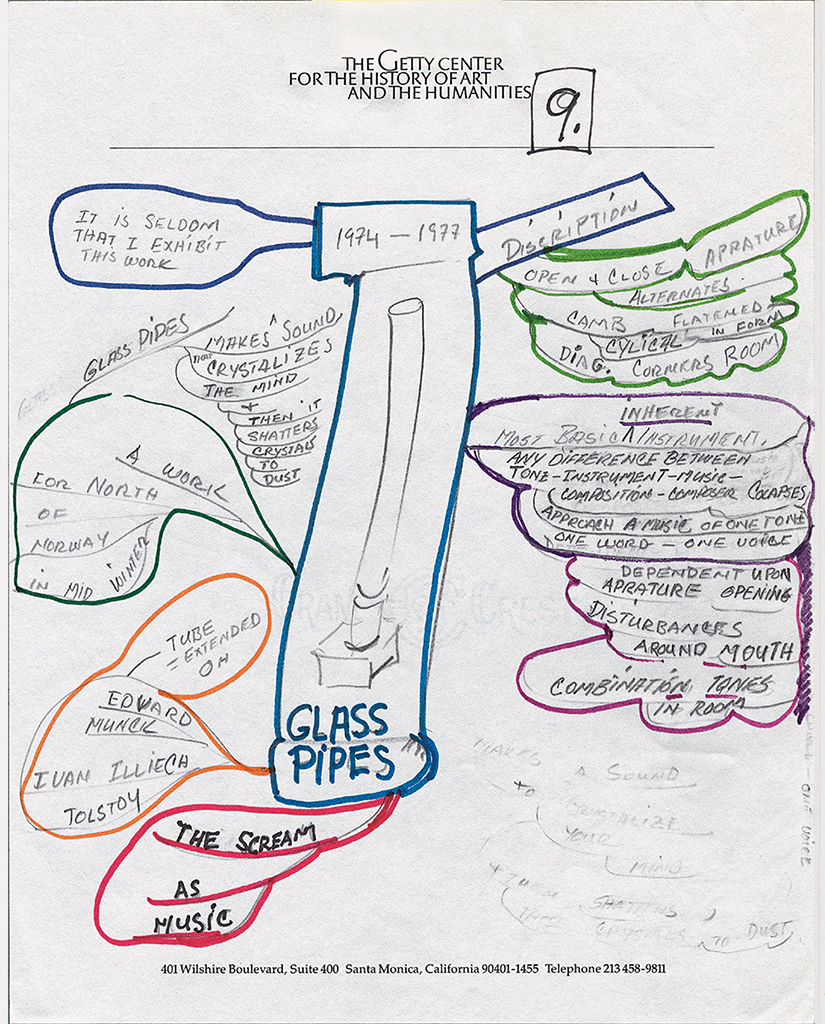 THE GETTY CENTER
FOR THE HISTORY OF ART
AND THE HUMANITIES
9.
IT IS SELDOM
THAT I EXHIBIT
THIS WORK
1974 — 1977
DISCRIPTION
APRATURE
OPEN + CLOSE
ALTERNATES
CAMB FLATENED
IN FORM
CYLICAL
DIAG. CORNERS ROOM
GLASS PIPES
MAKES A SOUND
THAT
CRYSTALIZES
THE MIND
+
THEN IT
SHATTERS
CRYSTALS
TO
DUST
A WORK
FOR NORTH
OF
NORWAY
IN MID WINTER
INHERENT
MOST BASIC INSTRUMENT,
ANY DIFFERENCE BETWEEN
TONE-INSTRUMENT-MUSIC-
COMPOSITION-COMPOSER COLAPSES
APPROACH A MUSIC OF ONE TONE
ONE WORD — ONE VOICE
DEPENDENT UPON
APRATURE OPENING
DISTURBANCES
AROUND MOUTH
COMBINATION TONES
IN ROOM
TUBE
= EXTENDED
OH
EDWARD
MUNCK
IVAN ILLIECH
TOLSTOY
GLASS
PIPES
THE SCREAM
AS
MUSIC
MAKES
A SOUND
TO
YOUR
MIND
TO DUST
ONE VOICE
401 Wilshire Boulevard, Suite 400 Santa Monica, California 90401-1455 Telephone 213 458-9811